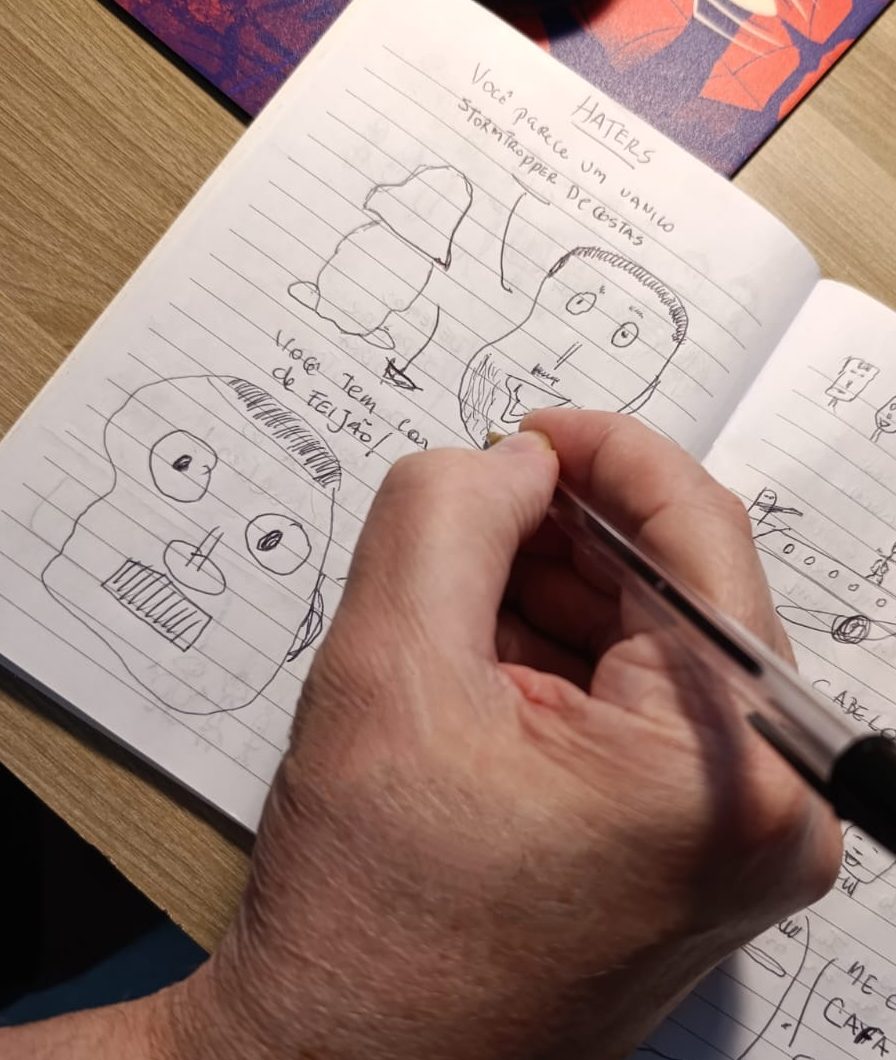 HATERS
Você parece um
STORMTROPPER DE COSTAS
você tem
de FEIJÃO!
CABELO
ME